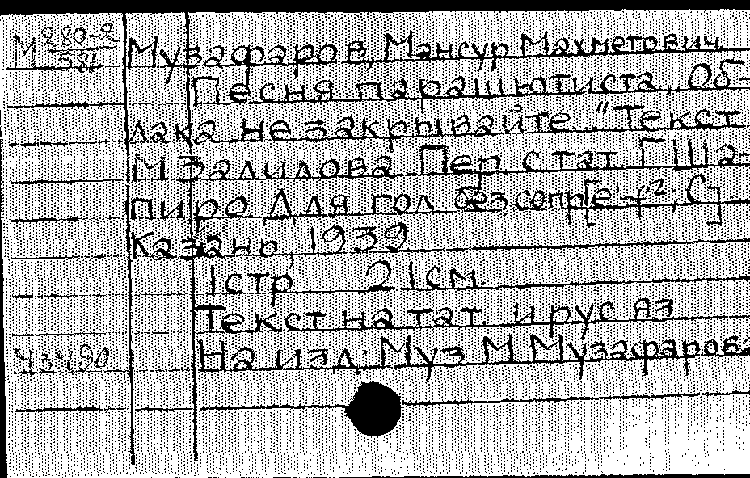 М 980-9/581 Музафаров, Мансур Махметович.
Песня парашютиста. "Об-
лака не закрывайте..." Текст
М Залилова Пер. с тат. Г Ша-
пиро Для гол. без сопр.
Казань, 1939
1 стр. 21 см
Текст на тат. и рус яз
На изл: Муз М Музафарова